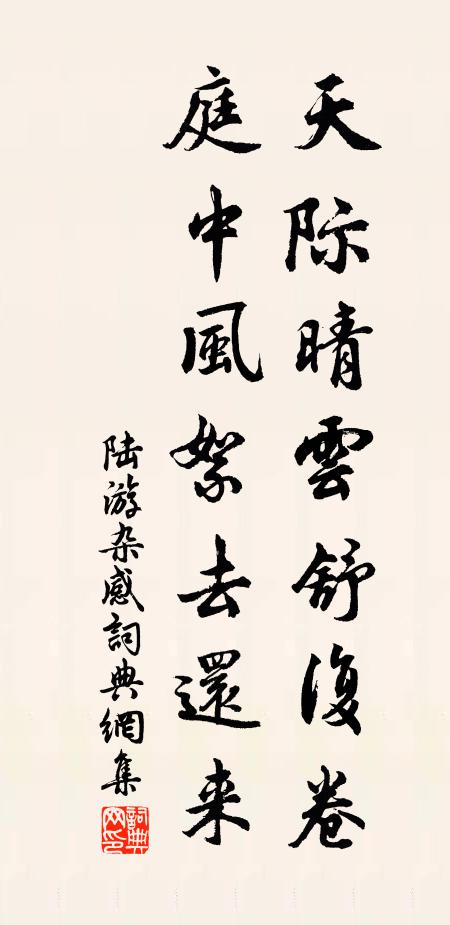 天际晴雲舒復卷
庭中風絮去還来
陆游杂感詞典網集
詞典网印